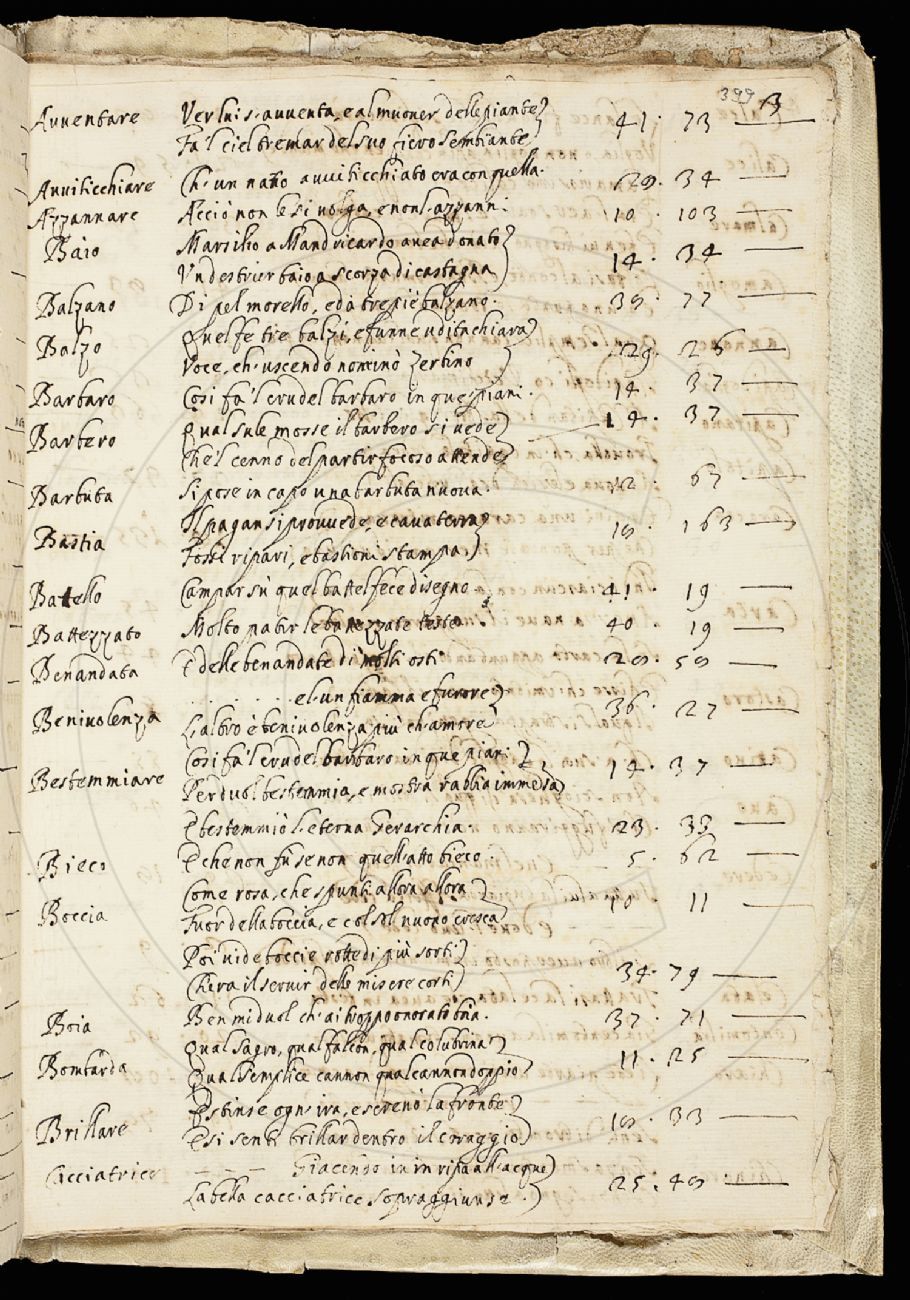 399 3
Avventare Ver lui s'avventa, e al muover delle piante
Fa 'l ciel tremar del suo fiero sembiante 41. 73
Avviticchiare Ch'un avviticchiato era con quella. 29. 34
Azzannare Acciò non le si volga, e non l'azzanni. 10. 103
Baio Marsilio a Mandricardo avea donato
Un destrier baio a scorza di castagna 14. 34
Balzano Di pel morello, ed à tre piè balzano. 38. 77
Balzo Quel fe tre balzi, e funne udita chiara
Voce, ch'uscendo nominò Zerbino 29. 26
Barbaro Cosi fa 'l crudel barbaro in que piani. 14. 37
Barbero Qual su le mosse il barbero si vede 14. 37
Che 'l cenno del partir focoso attende
Barbuta Si pose in capo una barbuta nuova. 12. 67
Bastia Il pagan si provvede, e cava terra
Fossi ripari, e bastioni stampa 18. 163
Battello Campar sù quel battel fece disegno 41. 19
Battezzato Molto patir le battezzate teste. 40. 19
Benandata E delle benandate di molti osti 28. 58
. . . . e l'un fiamma e furore
Benivolenza L'altro è benivolenza più ch'amore 36. 27
Cosi fa 'l crudel barbaro in que piani
Bestemmiare Per duol bestemmia, e mostra rabbia immensa 14. 37
E bestemmiò l'eterna Gerarchia 23. 33
Bieco E che non fu se non quell'atto bieco 5. 62
Boccia Come rosa, che spunti allora allora
Fuor della boccia, e col sol nuovo cresca 10. 11
Poi vide boccie rotte di più sorti
Ch'era il servir delle misere corti 34. 79
Boia Ben mi duol ch'ai troppo onorato boia. 37. 71
Bombarda Qual sagro, qual falcon, qual colubrina
Qual semplice cannon qual cannon doppio 11. 25
Brillare Estinse ogn'ira, e serenò la fronte
E si senti brillar dentro il coraggio 18. 33
Cacciatrice – – – Giacendo in ripa all'acque
La bella cacciatrice sopraggiunse. 25. 48